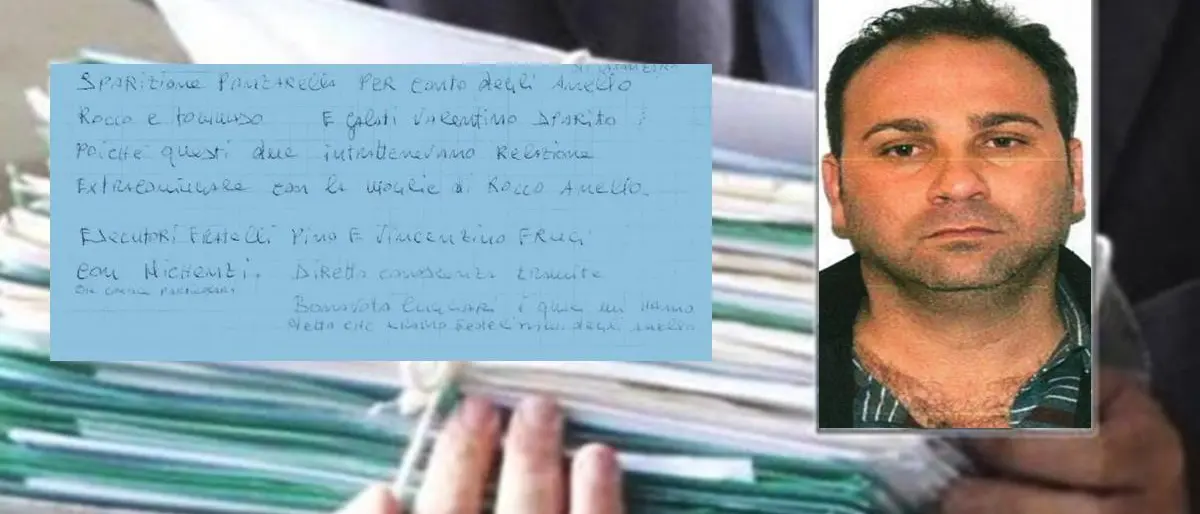 SPARIZIONE PANZARELLA PER CONTO degli ANELLO
ROCCO E TOMMASO E GALATI VALENTINO SPARITO
POICHE questi due intrattenevano RELAZIONE
EXTRACONIUGALE con la moglie di ROCCO ANELLO.
ESECUTORI FRATELLI PINO E VINCENZINO FRUCI
con MICHIENZI. DIRETTA conoscenza tramite
BONAVOTA i quali mi HANNO
detto che degli ANELLO